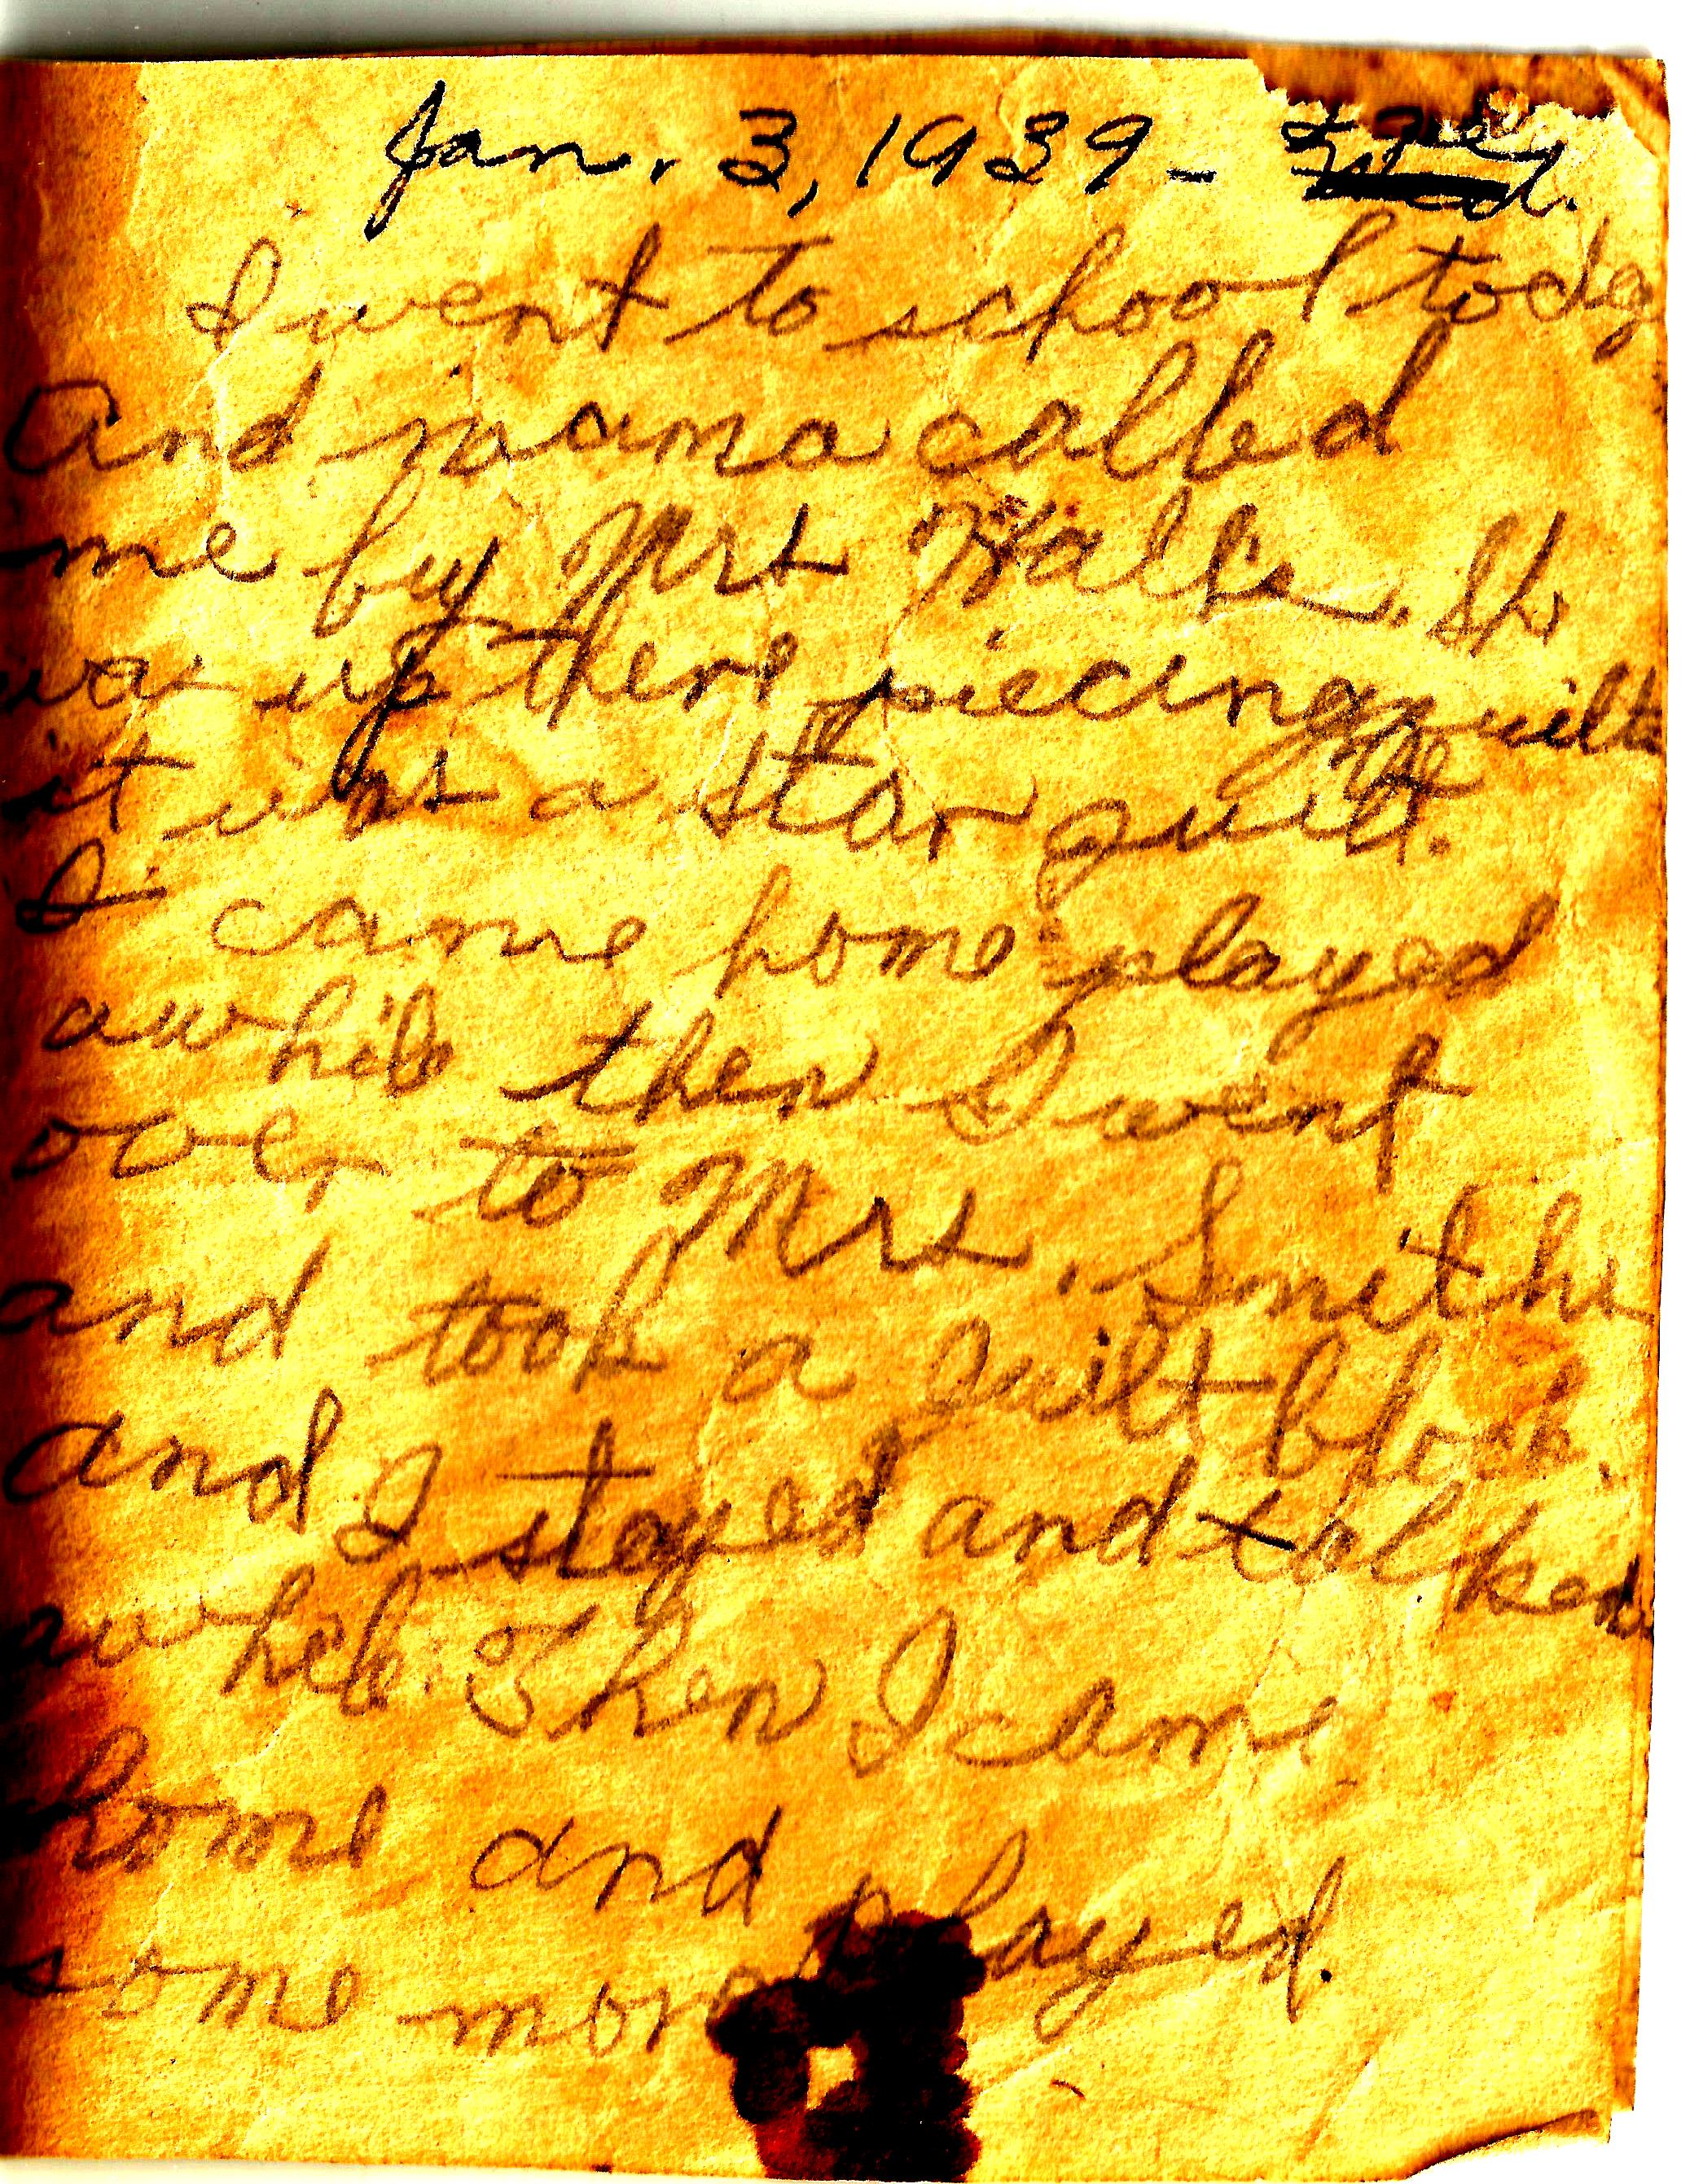 Jan. 3, 1939 - Tues.
I went to school today
And mama called
me by Mrs Walls. She
was up there piecing quilts
it was a star quilt.
I came home played
awhile then I went
over to Mrs. Smiths
and took a quilt block.
and I stayed and talked
awhile. Then I came
home and played.
some more